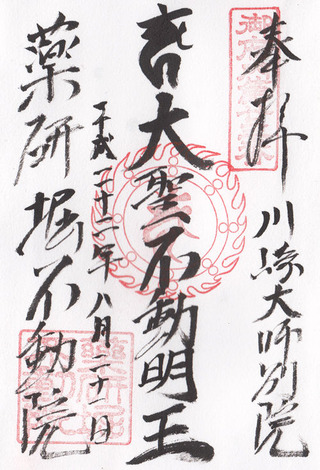 奉拝
川崎大師別院
大聖不動明王
平成二十二年八月二十日
薬研堀不動院